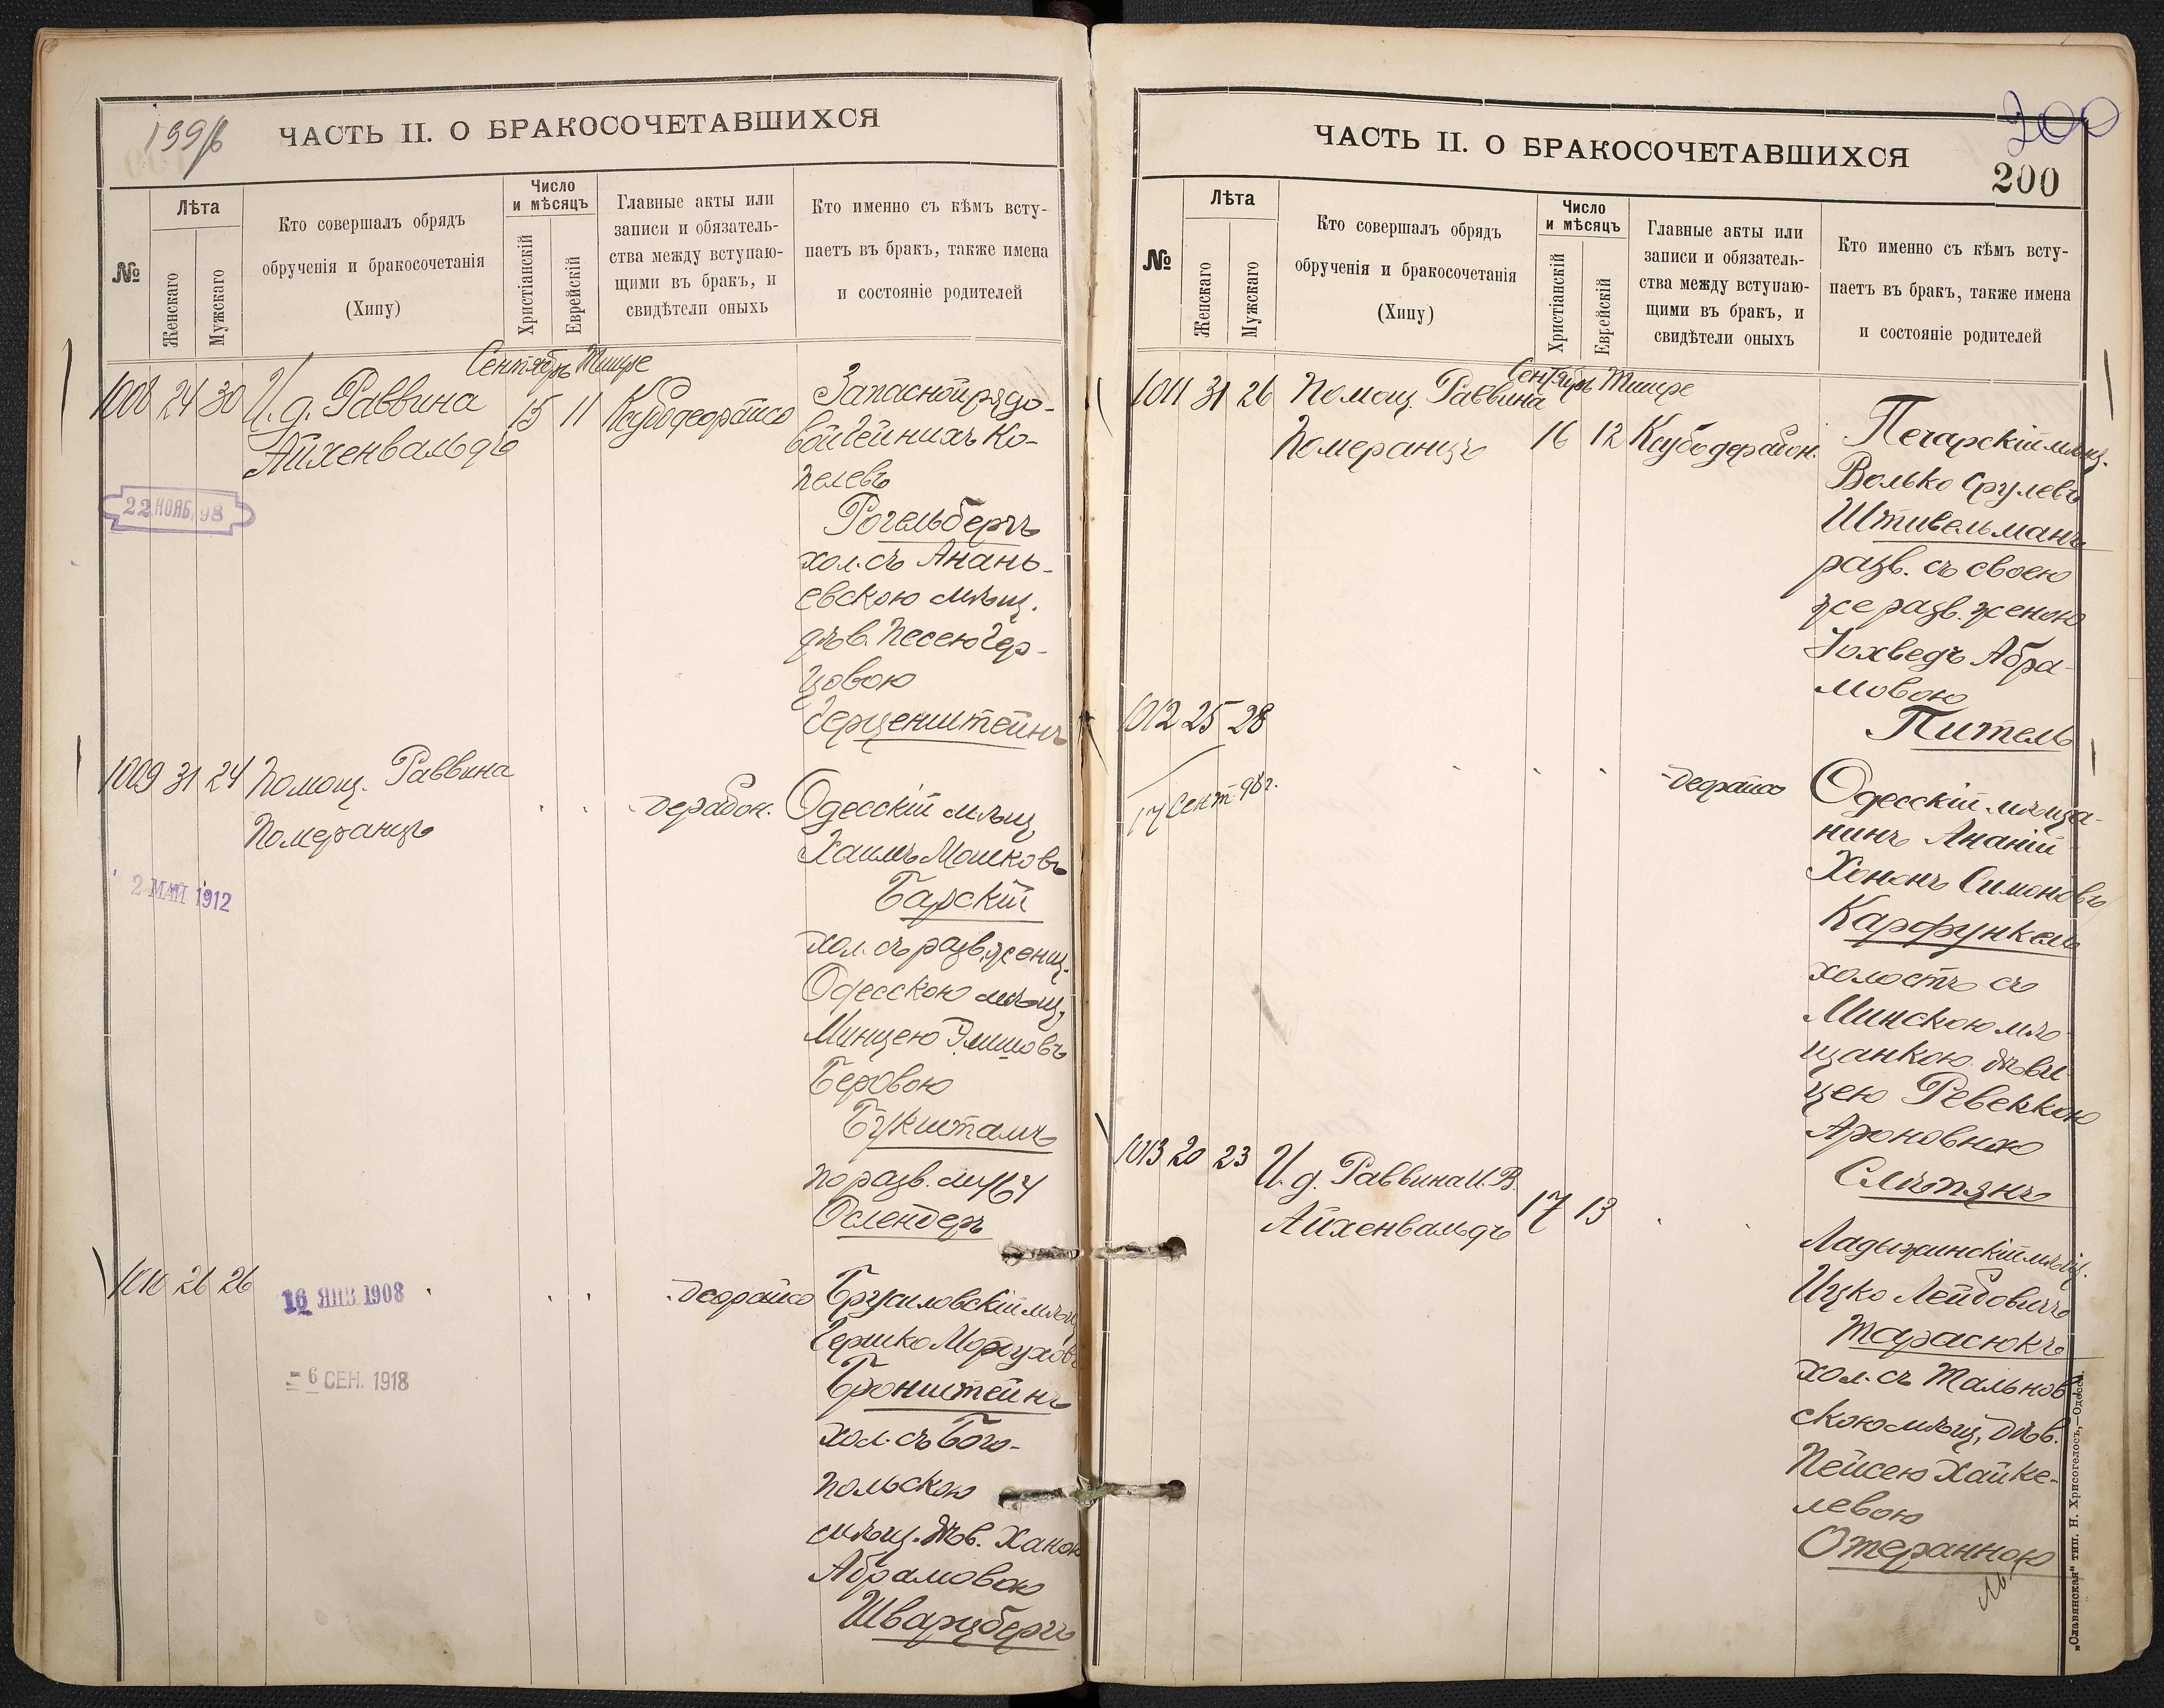 199/б
ЧАСТЬ II. О БРАКОСОЧЕТАВШИХСЯ
№
Лѣта
Женскаго
Мужскаго
Кто совершалъ обрядъ
обрученія и бракосочетанія
(Хипу)
Число
и мѣсяцъ
Христіанскій
Еврейскій
Главные акты или
записи и обязатель-
ства между вступаю-
щими въ бракъ, и
свидѣтели оныхъ
Кто именно съ кѣмъ всту-
паетъ въ бракъ, также имена
и состояніе родителей
Сентябрь Тишре
1008 24 30 И. д. Раввина 15 11
Айхенвальдъ
22 НОЯБ. 98
Запасной рядо-
вой
Ко-
пелевъ
Рогельбергъ
хол. съ Анань-
евскою мѣщ.
дѣв. Песею Гер-
цовою
Герценштейнъ
1009 31 24 Помощ. Раввина
Померанцъ
2 МАЙ 1912
Одесскій мѣщ.
Хаимъ Мошковъ
Барскій
хол. съ разв. женщ.
Одесскою мѣщ.
Минцею
Беровою
Букштамъ
по разв. м
Ослендеръ
1010 26 26
16 ЯНВ 1908
- 6 СЕН. 1918
Брусиловскій мѣщ
Гершко Мордухов
Бронштейнъ
хол. съ Бого-
польскою
мѣщ. дѣв. Ханою
Абрамовою
Шварцбергъ
200
ЧАСТЬ II. О БРАКОСОЧЕТАВШИХСЯ
200
№
Лѣта
Женскаго
Мужскаго
Кто совершалъ обрядъ
обрученія и бракосочетанія
(Хипу)
Число
и мѣсяцъ
Христіанскій
Еврейскій
Главные акты или
записи и обязатель-
ства между вступаю-
щими въ бракъ, и
свидѣтели оныхъ
Кто именно съ кѣмъ всту-
паетъ въ бракъ, также имена
и состояніе родителей
Сентябрь Тишре
1011 31 26 Помощ. Раввина
Померанцъ 16 12
Печарскій мѣщ.
Волько Срулевъ
Штивельманъ
разв. съ своею
же разв. женою
Іохведъ Абра-
мовою
Питель
1012 25 28
17 Сент. 98 г.
Одесскій мѣща-
нинъ Ананій
Хононъ Симоновъ
Карфункель
холостъ съ
Минскою мѣ-
щанкою дѣви-
цею Ревеккою
Ароновною
Слѣпянъ
1013 20 23 И. д. Раввина И. В.
Айхенвальдъ 17 13
Ладыжинскій мѣщ.
Ицко Лейбовичъ
Тарасюкъ
хол. съ Тальнов
скою мѣщ. дѣв.
Пейсею Хайке-
левою
Отеранною
„Славянская" тип. Н. Хрисогелосъ,—Одесса.